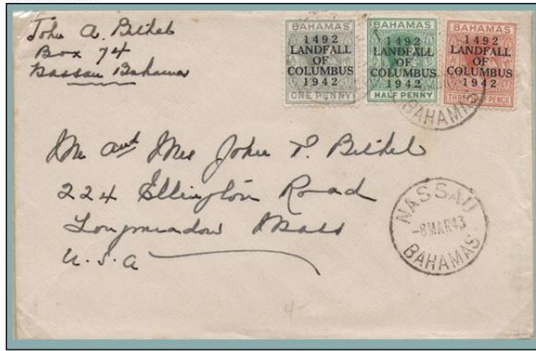 John A. Bethel
Box 74
Nassau Bahamas
BAHAMAS
1492
LANDFALL
OF
COLUMBUS
1942
ONE PENNY
BAHAMAS
1492
LANDFALL
OF
COLUMBUS
1942
HALF PENNY
BAHAMAS
1492
LANDFALL
OF
COLUMBUS
1942
PENCE
BAHAMAS
Mr and Mrs John P. Bethel
224 Ellington Road
Longmeadow Mass
U.S.A
NASSAU
-8MAR43
BAHAMAS